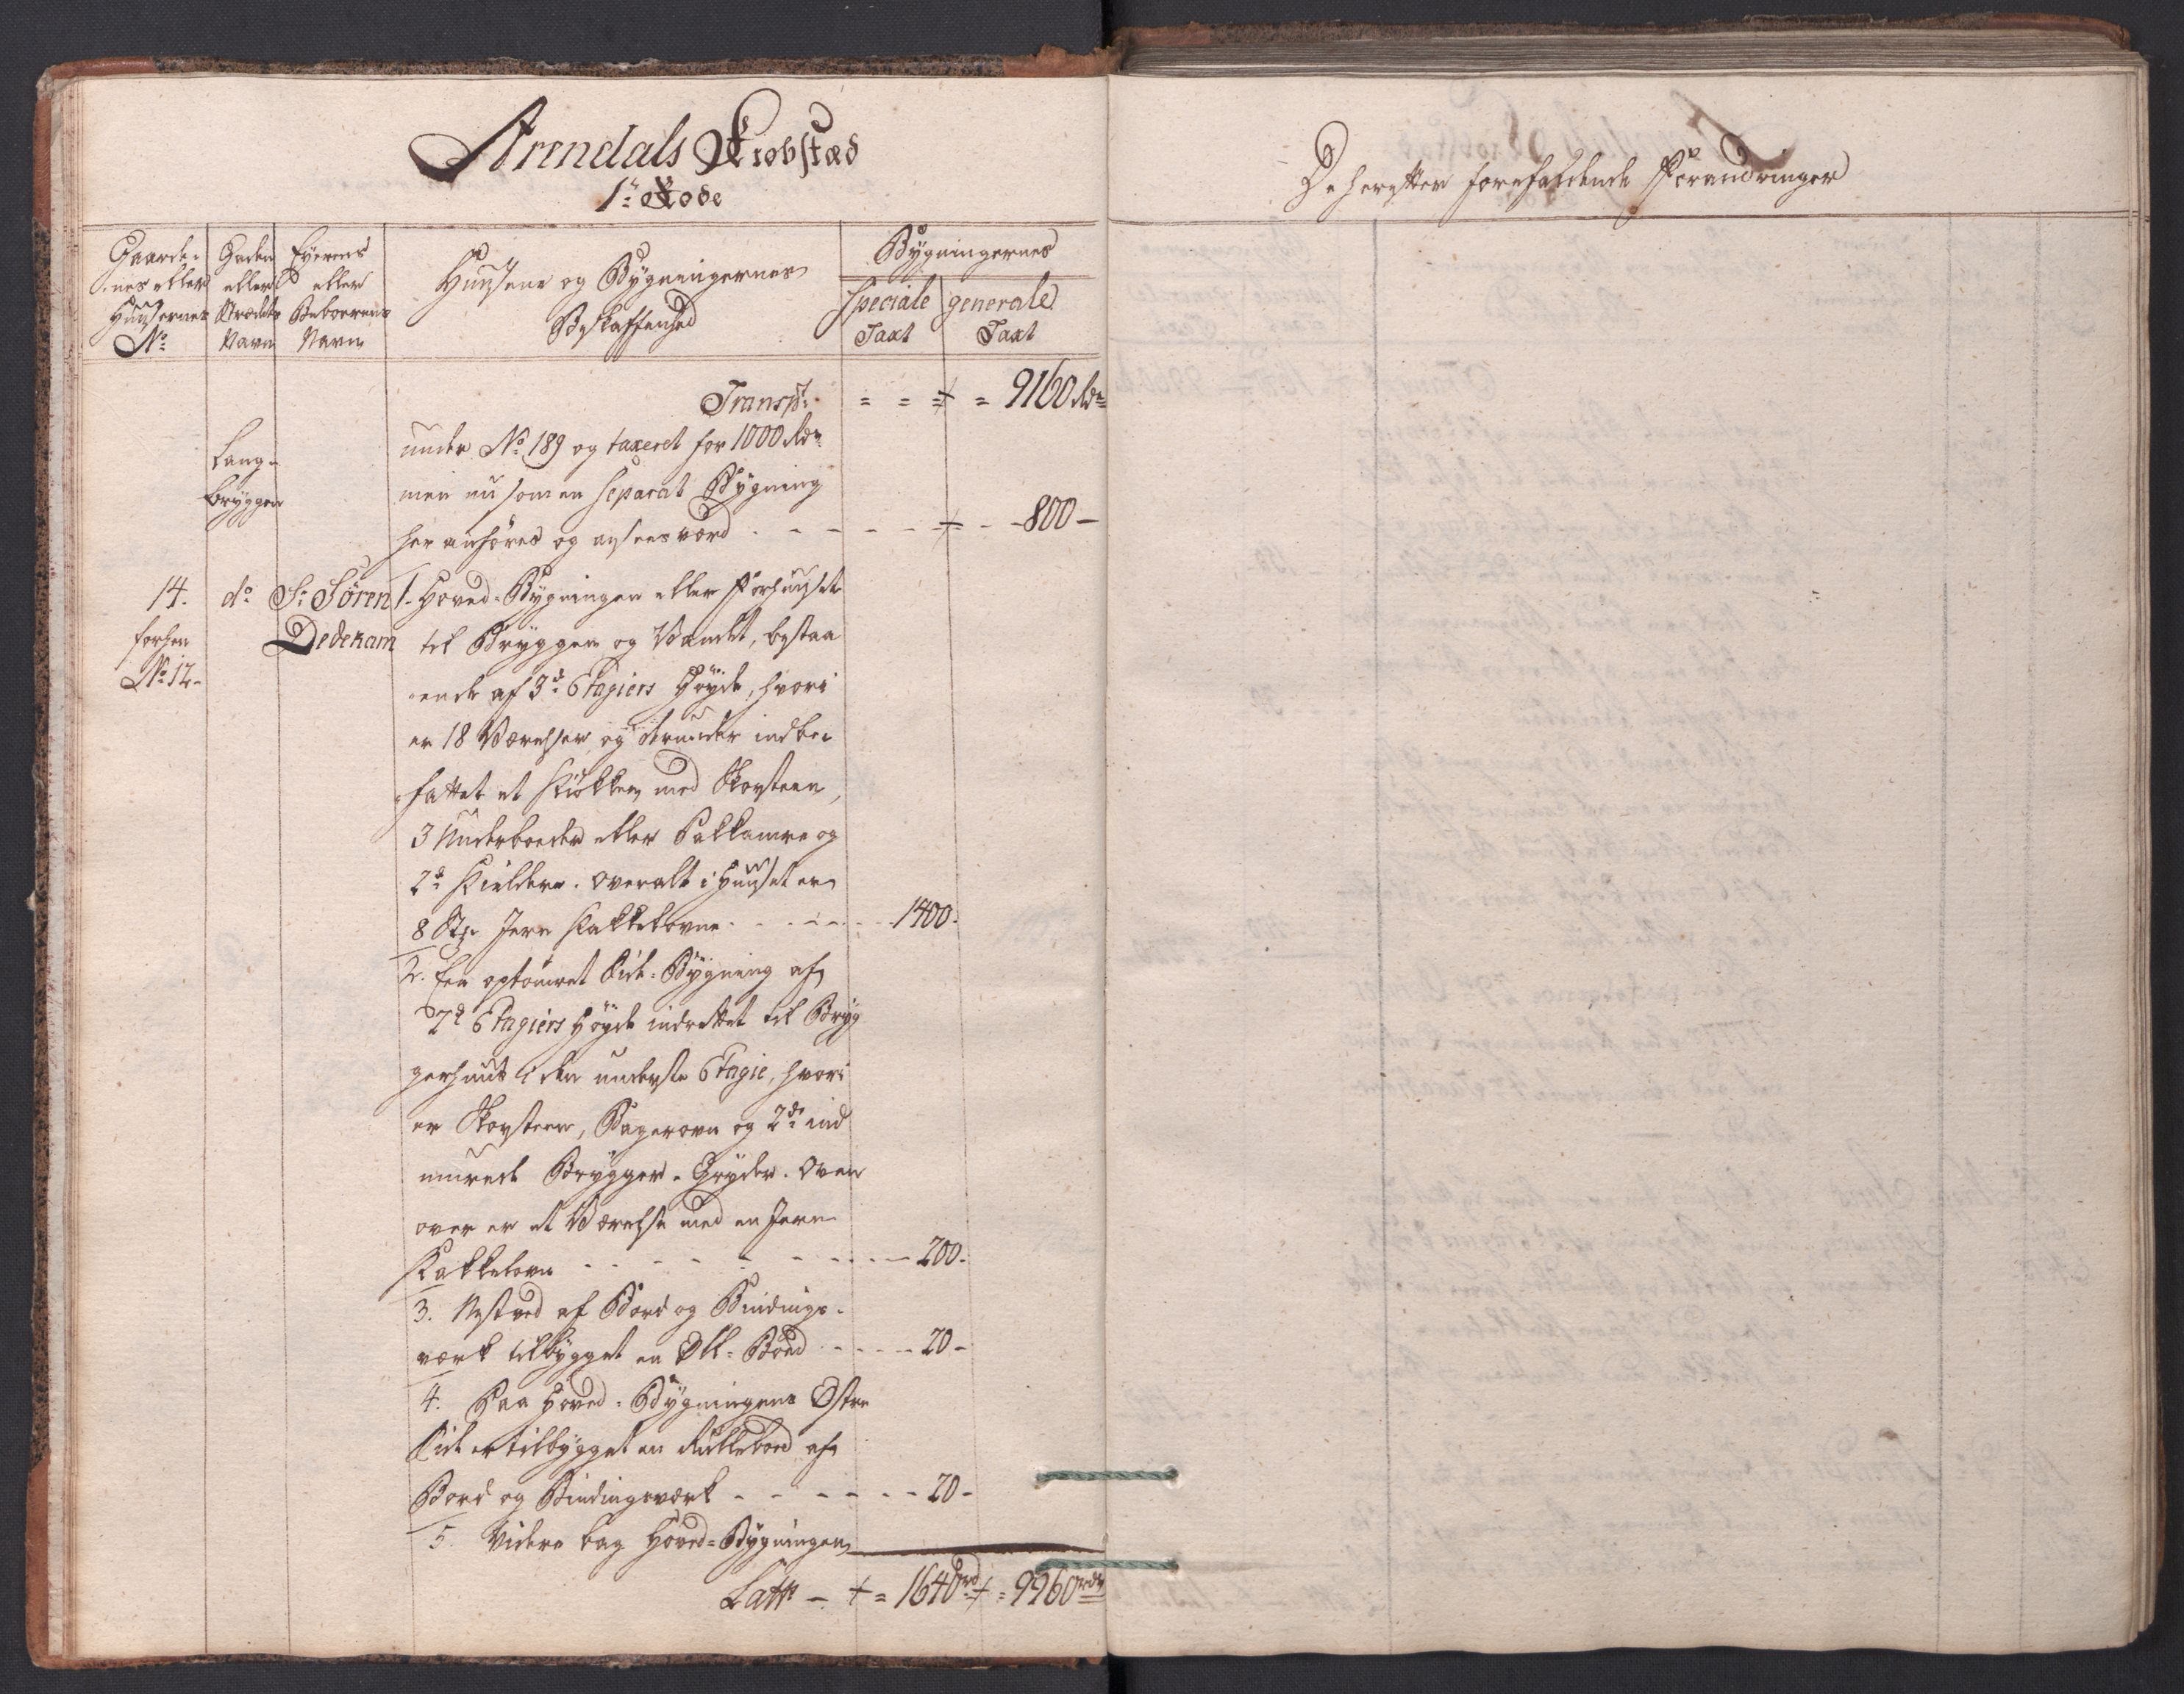 Arendals Kiøbstæd
1te Rode
Gaarde-
nes eller
Huusernes
No
Gaden
eller
Strædets
Navn
Eyerens
eller
Beboerens
Navn
Huusene og Bygningernes
Beskaffenhed
Bygningernes
speciale
Taxt
generale
Taxt
Transpt: = = + = 9160 Rdr
Lang-
bryggen
under No 189 og taxeret for 1000 Rdr
men nu som en separat Bygning
her anføres og ansees værd - - - - - + - - 800 -
14.
forhen
No 12-
do
Sr Søren
Dedekam
1. Hoved-Bygningen eller Forhuuset
til Bryggen og Vandet, bestaa
ende af 3de Etagiers Høyde, hvori
er 18 Værelser og derunder indbe-
fattet et Kiøkken med Skorsteen,
3 Underboeder eller Pakkamre og
2de Kieldere. Overalt i Huuset er
8 Stk Jern Kakkelovne - - - - - 1400.
2. Een optømret Side-Bygning af
2de Etagiers Høyde indrettet til Bryg
gerhuus i den underste Etagie, hvori
er Skorsteen, Bagerovn og 2de ind
murede Brygger-Gryder. Oven
over er et Værelse med en Jern
Kakkelovn - - - - - - - 200.
3. Vest ved af Bord og Bindings-
værk tilbygget en Øll-Boed - - - - 20 -
4. Paa Hoved-Bygningens Østre
Side er tilbygget en Rullebod af
Bord og Bindingsværk - - - - - - 20 -
5. Videre bag Hoved-Bygningen
Latr - + = 1640 rd + = 9960 rdr
De herefter forefaldende Forandringer